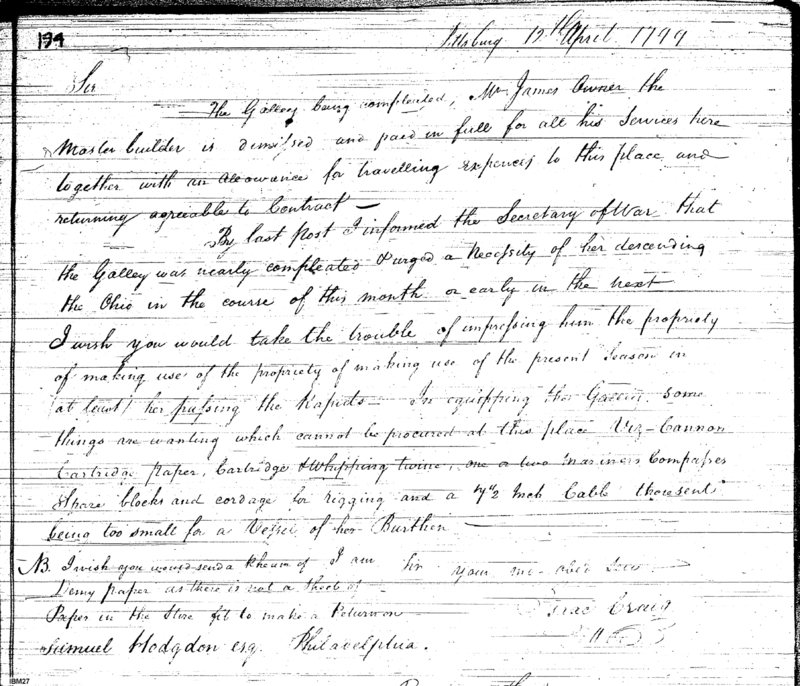 194
Pittsburg 12th April 1799
Sir
The Galley being compleated, Mr James Owner the
Master builder is dismissed and paid in full for all his Services here
together with an allowance for travelling expences to this place and
returning agreable to Contract —
By last Post I informed the Secretary of War that
the Galley was nearly compleated & urged a Necessity of her descending
the Ohio in the course of this month or early in the next
I wish you would take the trouble of impressing him the propriety
of making use of the propriety of making use of the present Season in
at least her passing the Rapids — In equipping the Galley some
things are wanting which cannot be procured at this place Viz- Cannon
Cartridge paper, Cartridge & Whipping twine, one or two Mariners Compasses
Spare blocks and cordage for rigging and a 7 1/2 Inch Cable
being too small for a Vessel of her Burthen —
NB. I wish you would send a Rheum of I am Sir your
Demy paper as there is not a Sheet of
Paper in the Store fit to make a Return on
Isaac Craig
Samuel Hodgdon esq. Philadelphia.
IBM27